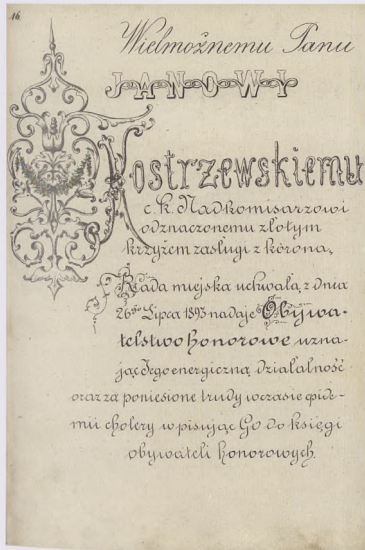 16.
Wielmożnemu Panu
JANOWI
Kostrzewskiemu
c. k. Nadkomisarzowi
odznaczonemu złotym
krzyżem zasługi z koroną,
Rada miejska uchwałą z dnia
26go Lipca 1893 nadaje Obywa-
telstwo honorowe uzna-
jąc Jego energiczną działalność
oraz za poniesione trudy w czasie epide-
mii cholery wpisując Go do księgi
obywateli honorowych.